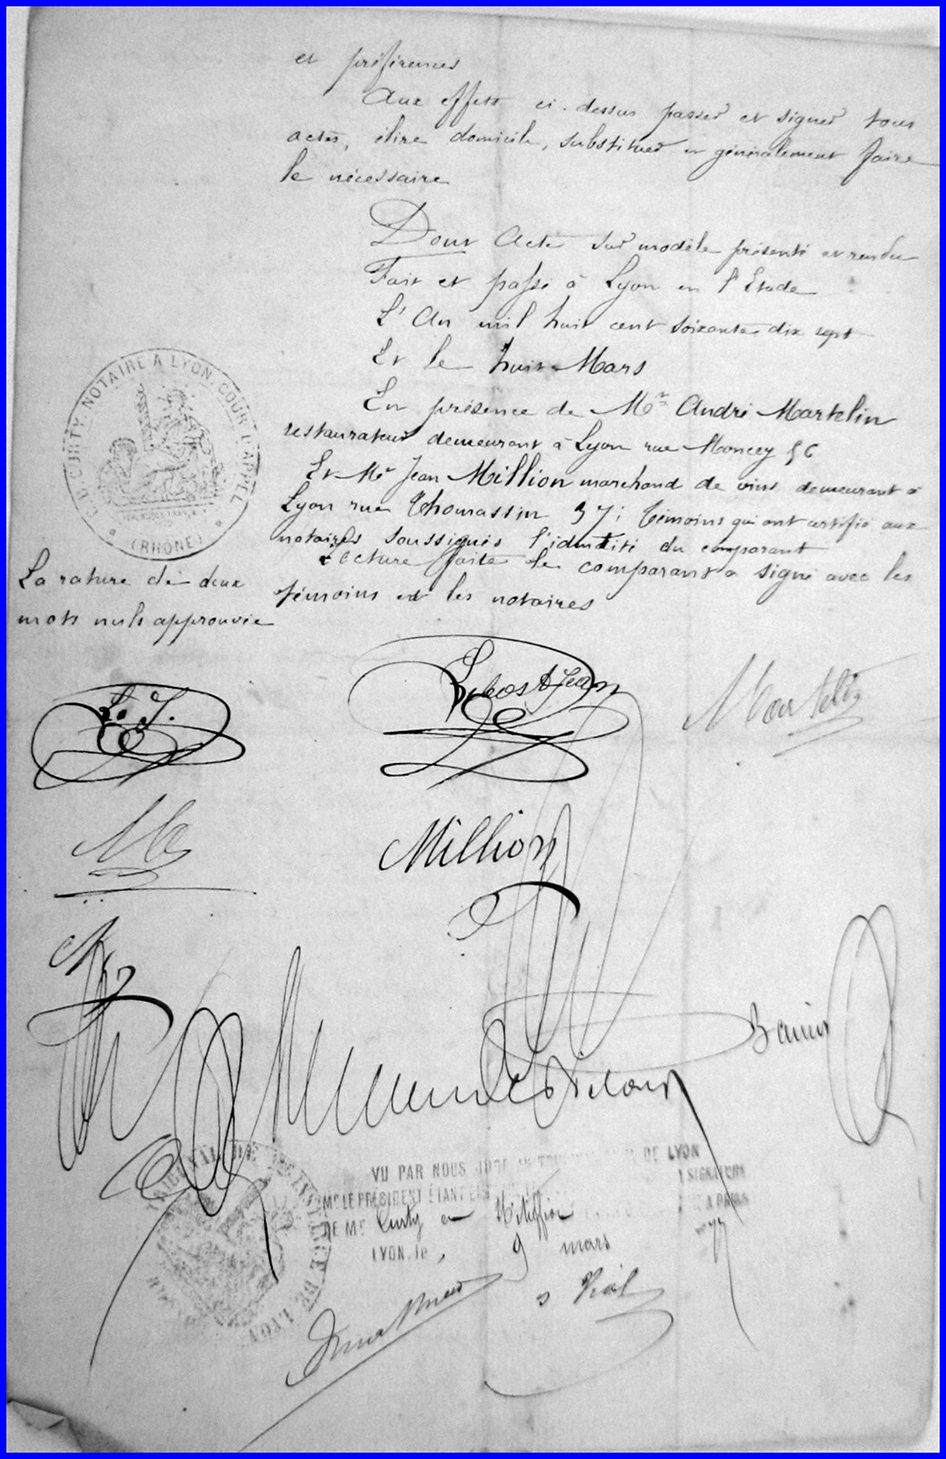 et préférences
Aux effets ci-dessus passer et signer tous
actes, élire domicile, substituer et généralement faire
le nécessaire
Dont Acte sur modèle présenté et rendu
Fait et passé à Lyon en l'Etude
L'An mil huit cent soixante dix sept
Et le huit Mars
En présence de Mr André Martelin
restaurateur demeurant à Lyon rue Moncey 56
Et Mr Jean Million marchand de vins demeurant à
Lyon rue Thomassin 37; témoins qui ont certifié aux
notaires soussignés l'identité du comparant
Lecture faite le comparant a signé avec les
témoins et les notaires
CURTY NOTAIRE A LYON. COUR D'APPEL
(RHÔNE)
La rature de deux
mots nuls approuvée
L. J.
Jean
Martelin
Million
TRIBUNAL DE 1ERE INSTANCE DE LYON
VU PAR NOUS JUGE DE LYON
MR LE PRÉSIDENT ÉTANT SIGNATURE
DE ME Curty et
LYON, le, 9 mars 77